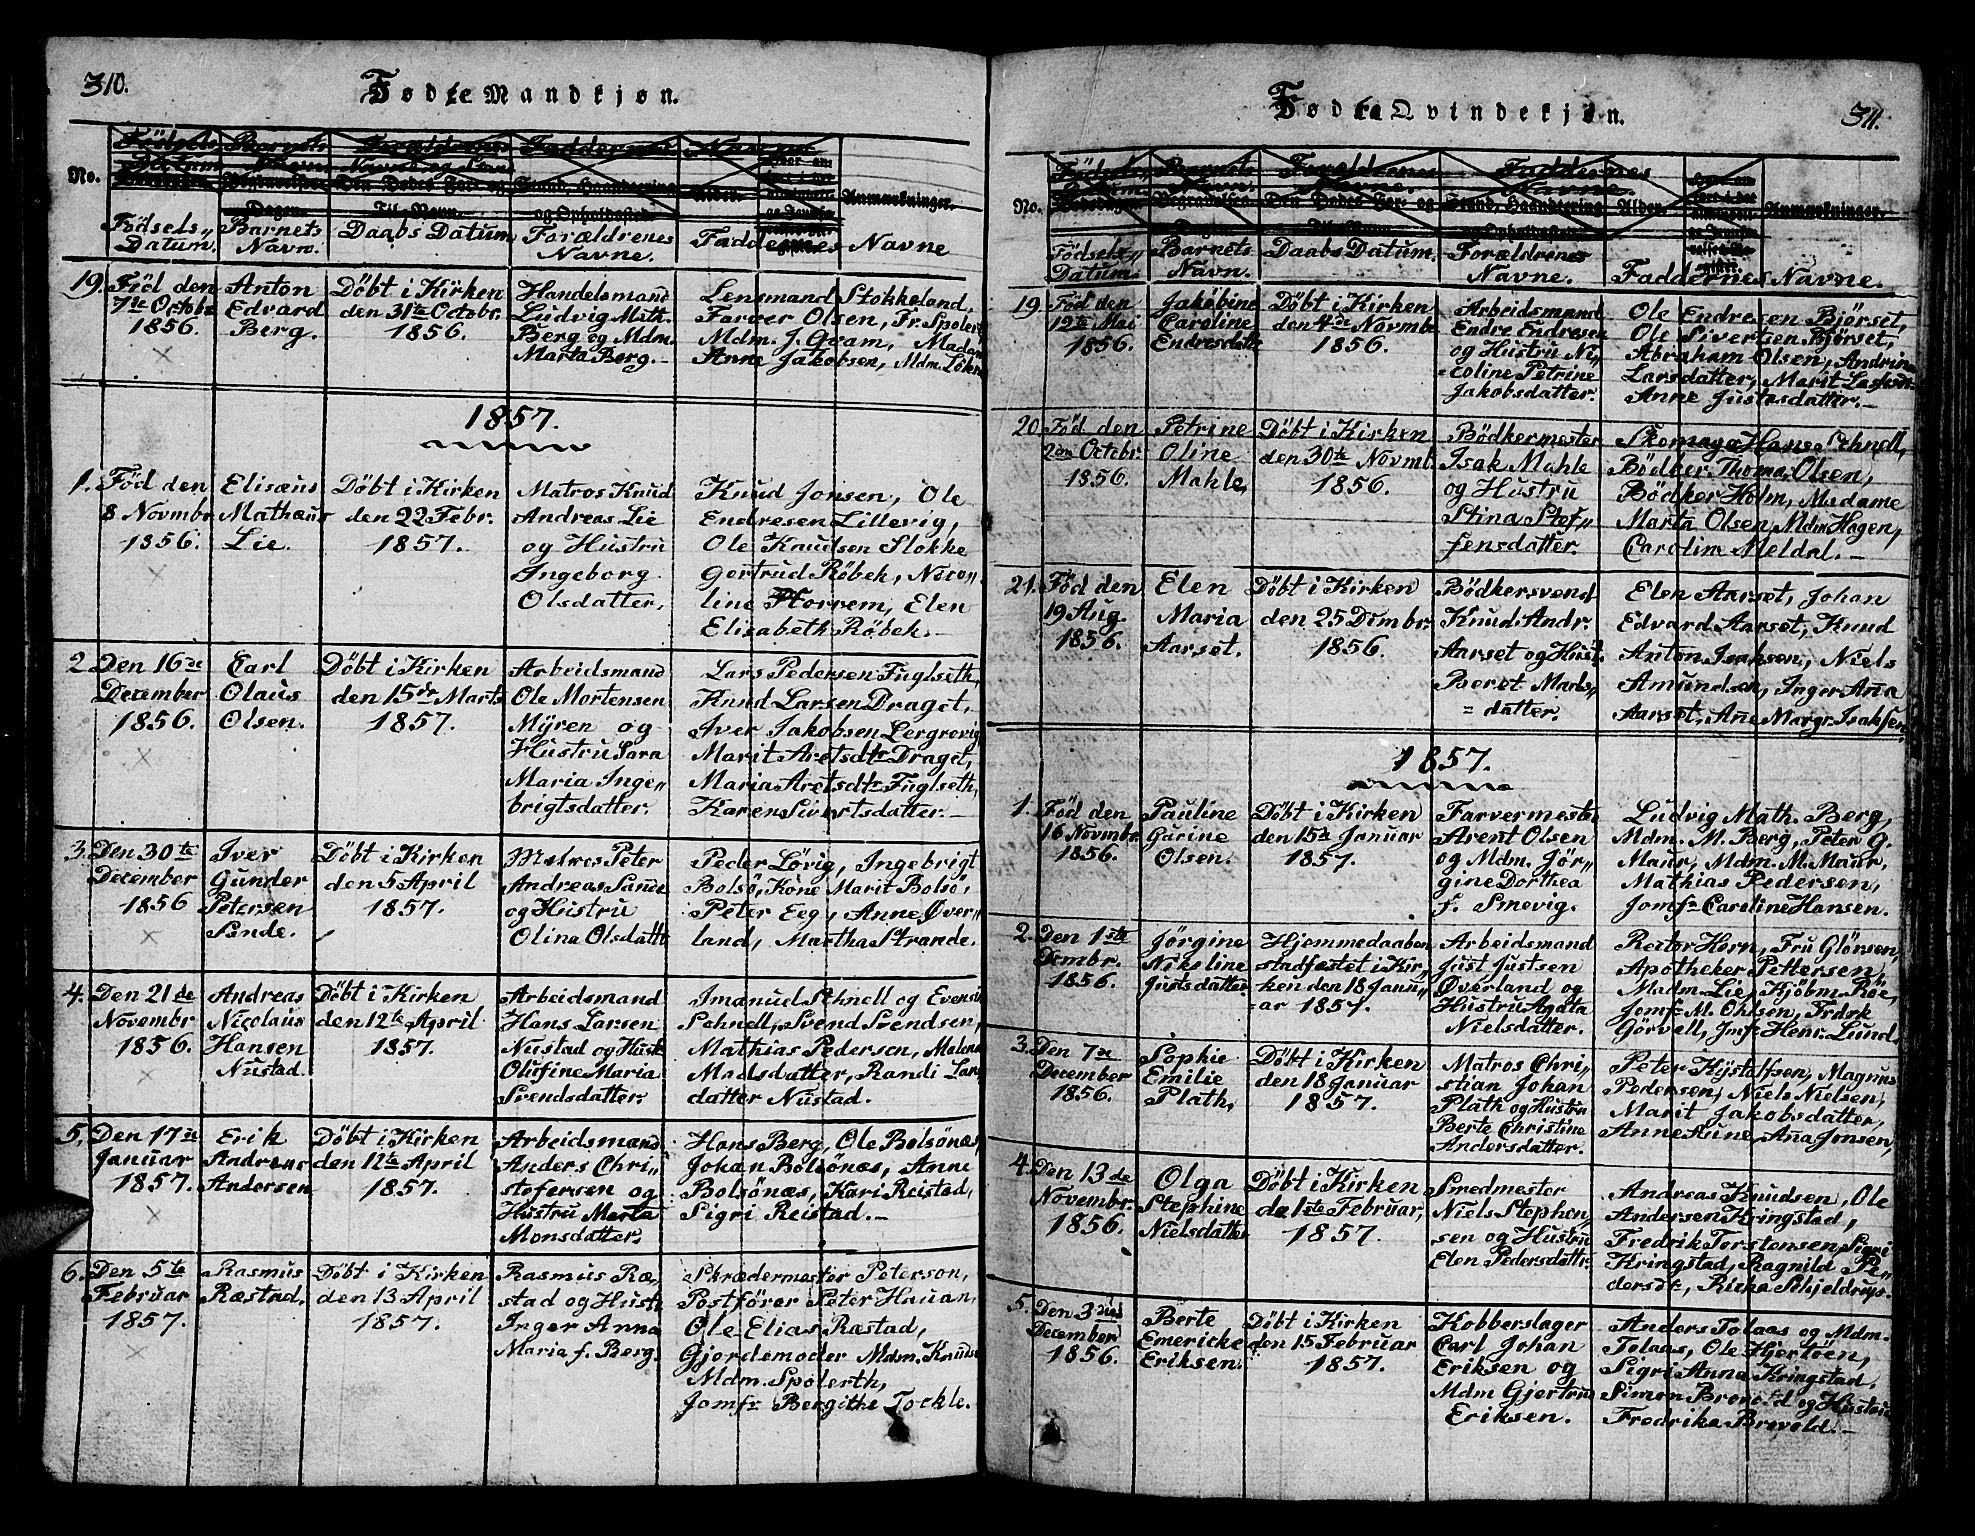 310.
Fødte Mandkjøn.
No.
Anmærkninger.
Födsels„ Datum.
Barnets Navn.
Daabs Datum
Forældrenes Navne.
Faddernes Navne
19.
Föd den
7de Octobr
1856.
Anton
Edvard
Berg.
Döbt i Kirken
den 31te Octobr.
1856.
Handelsmand
Ludvig Math.
Berg og Mdm.
Marta Berg.
Lensmand Stokkeland,
Farver Olsen, Fr. Spolert
Mdm. J. Qvam, Madam
Anne Jakobsen, Mdm. Lökn
1857.
1.
Föd den
8 Novmbr
1856.
Elisæus
Mathæus
Lie.
Döbt i Kirken
den 22 Febr.
1857.
Matros Knud
Andreas Lie
og Hustru
Ingeborg
Olsdatter,
Knud Jonsen, Ole
Endresen Lillevig,
Ole Knudsen Stokke
Gertrud Röbek, Nico„
line Horrem, Elen
Elisabeth Röbek.
2
Den 16de
December
1856.
Carl
Olaus
Olsen.
Döbt i Kirken
den 15de Marts
1857.
Arbeidsmand
Ole Mortensen
Myren og
Hustru Sara
Maria Inge„
brigtsdatter.
Lars Pedersen Fuglseth,
Knud Larsen Draget,
Iver Jakobsen Lergrovig
Marit Aretsdtr Draget,
Maria Aretsdtr Fuglseth,
Karen Sivertsdatter.
3.
Den 30te
December
1856
Iver
Gunder
Petersen
Sande.
Döbt i Kirken
den 5 April
1857.
Matros Peter
Andreas Sande
og Hustru
Olina Olsdattr
Peder Lövig, Ingebrigt
Bolsö, Kone Marit Bolsö,
Peter Eeg, Anne Över„
land, Martha Strande.
4.
Den 21de
Novembr
1856.
Andreas
Nicolaus
Hansen
Nustad.
Döbt i Kirken
den 12te April
1857.
Arbeidsmand
Hans Larsen
Nustad og Hust
Olufine Maria
Svendsdatter.
Imanud Schnell og Even
Schnell, Svend Svendsen,
Mathias Pedersen, Malena
Madsdatter, Randi Lars
datter Nustad.
5,
Den 17de
Januar
1857.
Erik
Andreas
Andersen
Döbt i Kirken
den 12te April
1857.
Arbeidsmand
Anders Chri„
stofersen og
Hustru Marta
Monsdatter.
Hans Berg, Ole Bolsönæs,
Johan Bolsönæs, Anne
Bolsönæs, Kari Reistad,
Sigri Reistad.
6.
Den 5te
Februar
1857.
Rasmus
Ræstad.
Döbt i Kirken
den 13 April
1857.
Rasmus Ræ„
stad og Hustr
Inger Anna
Maria f. Berg.
Skrædermester Peterson,
Postförer Peter Hauan,
Ole Elias Ræstad,
Gjordemoder Mdm. Knuds
Mdm. Spolerth,
Jomfr Bergithe Tockle.
311.
Fødte Qvindekjøn.
No.
Anmærkninger.
Födsels„ Datum.
Barnets Navn.
Daabs Datum.
Forældrenes Navne.
Faddernes Navne.
19
Föd den
12te Mai
1856.
Jakobine
Caroline
Endresdattr
Döbt i Kirken
den 4de Novmbr
1856.
Arbeidsmand
Endre Endresen
og Hustru Ni„
coline Petrine
Jakobsdatter.
Ole Endresen Björset,
Ole Sivertsen Björset,
Abraham Olsen, Andrine
Larsdatter, Marit Larsdtr
Anne Justesdatter.
20
Föd den
2den Octobr.
1856.
Petrine
Oline
Mahle,
Döbt i Kirken
den 30te Novmb.
1856.
Bödkermester
Isak Mahle
og Hustru
Stina Stef„
fensdatter.
Skomager Hans Schnell,
Bödker Thomas Olsen,
Bödker Holm, Madame
Marta Olsen, Mdm Hagen,
Caroline Meldal.
21.
Föd den
19 Aug
1856.
Elen
Maria
Aarset.
Döbt i Kirken
den 25 Dcmbr.
1856.
Bödkersvend
Knud Andr.
Aarset og Hust.
Beret Mads„
datter.
Elen Aarset, Johan
Edvard Aarset, Knud
Anton Isaksen, Niels
Amundsen, Inger Aña
Aarset, Añe Margr. Isaksen
1857.
1.
Föd den
16 Novmbr.
1856.
Pauline
Garine
Olsen.
Döbt i Kirken
den 15de Januar
1857.
Farvermester
Arent Olsen
og Mdm. Jör„
gine Dorthea
f. Smevig.
Ludvig Math. Berg,
Mdm. M. Berg, Peter G.
Maur, Mdm. M. Maur,
Mathias Pedersen,
Jomfr Caroline Hansen.
2.
Den 1ste
Dcmbr.
1856.
Jörgine
Nikoline
Justsdatter
Hjemmedaaben
stadfæstet i Kir„
ken den 18 Janu„
ar 1857.
Arbeidsmand
Just Justsen
Överland og
Hustru Agata
Nielsdatter.
Rector Horn, Fru Glörsen,
Apotheker Pettersen,
Madm. Lie, Kjöbm. Röe,
Jomfr M. Ohlsen, Frdrk
Görvell, Jmfr Henr. Lund.
3.
Den 7de
December
1856.
Sophie
Emilie
Plath,
Döbt i Kirken
den 18 Januar
1857.
Matros Chri„
stian Johan
Plath og Hustru
Berte Christine
Andersdatter.
Peter Kystoffsen, Magnus
Pedersen, Niels Nielsen,
Marit Jakobsdatter,
Anne Aune, Aña Jonsen,
4.
Den 13de
November.
1856.
Olga
Stephine
Nielsdatter
Döbt i Kirken
de 1ste Februar,
1857.
Smedmester
Niels Stephen„
sen og Hustru
Elen Pedersdattr.
Andreas Knudsen, Ole
Andersen Kringstad,
Fredrik Torstensen, Sigri
Kringstad, Ragnild Pe„
dersdtr, Rika Schjeldrup.
5.
Den 3die
December
1856.
Berte
Emericke
Eriksen.
Döbt i Kirken
den 15 Februar
1857.
Kobberslager
Carl Johan
Eriksen og
Mdm Gjertrud
Eriksen.
Anders Tolaas og Mdm.
Tolaas, Ole Hjertöen,
Sigri Anna Kringstad,
Simon Brovold og Hustru
Fredrika Brovold.